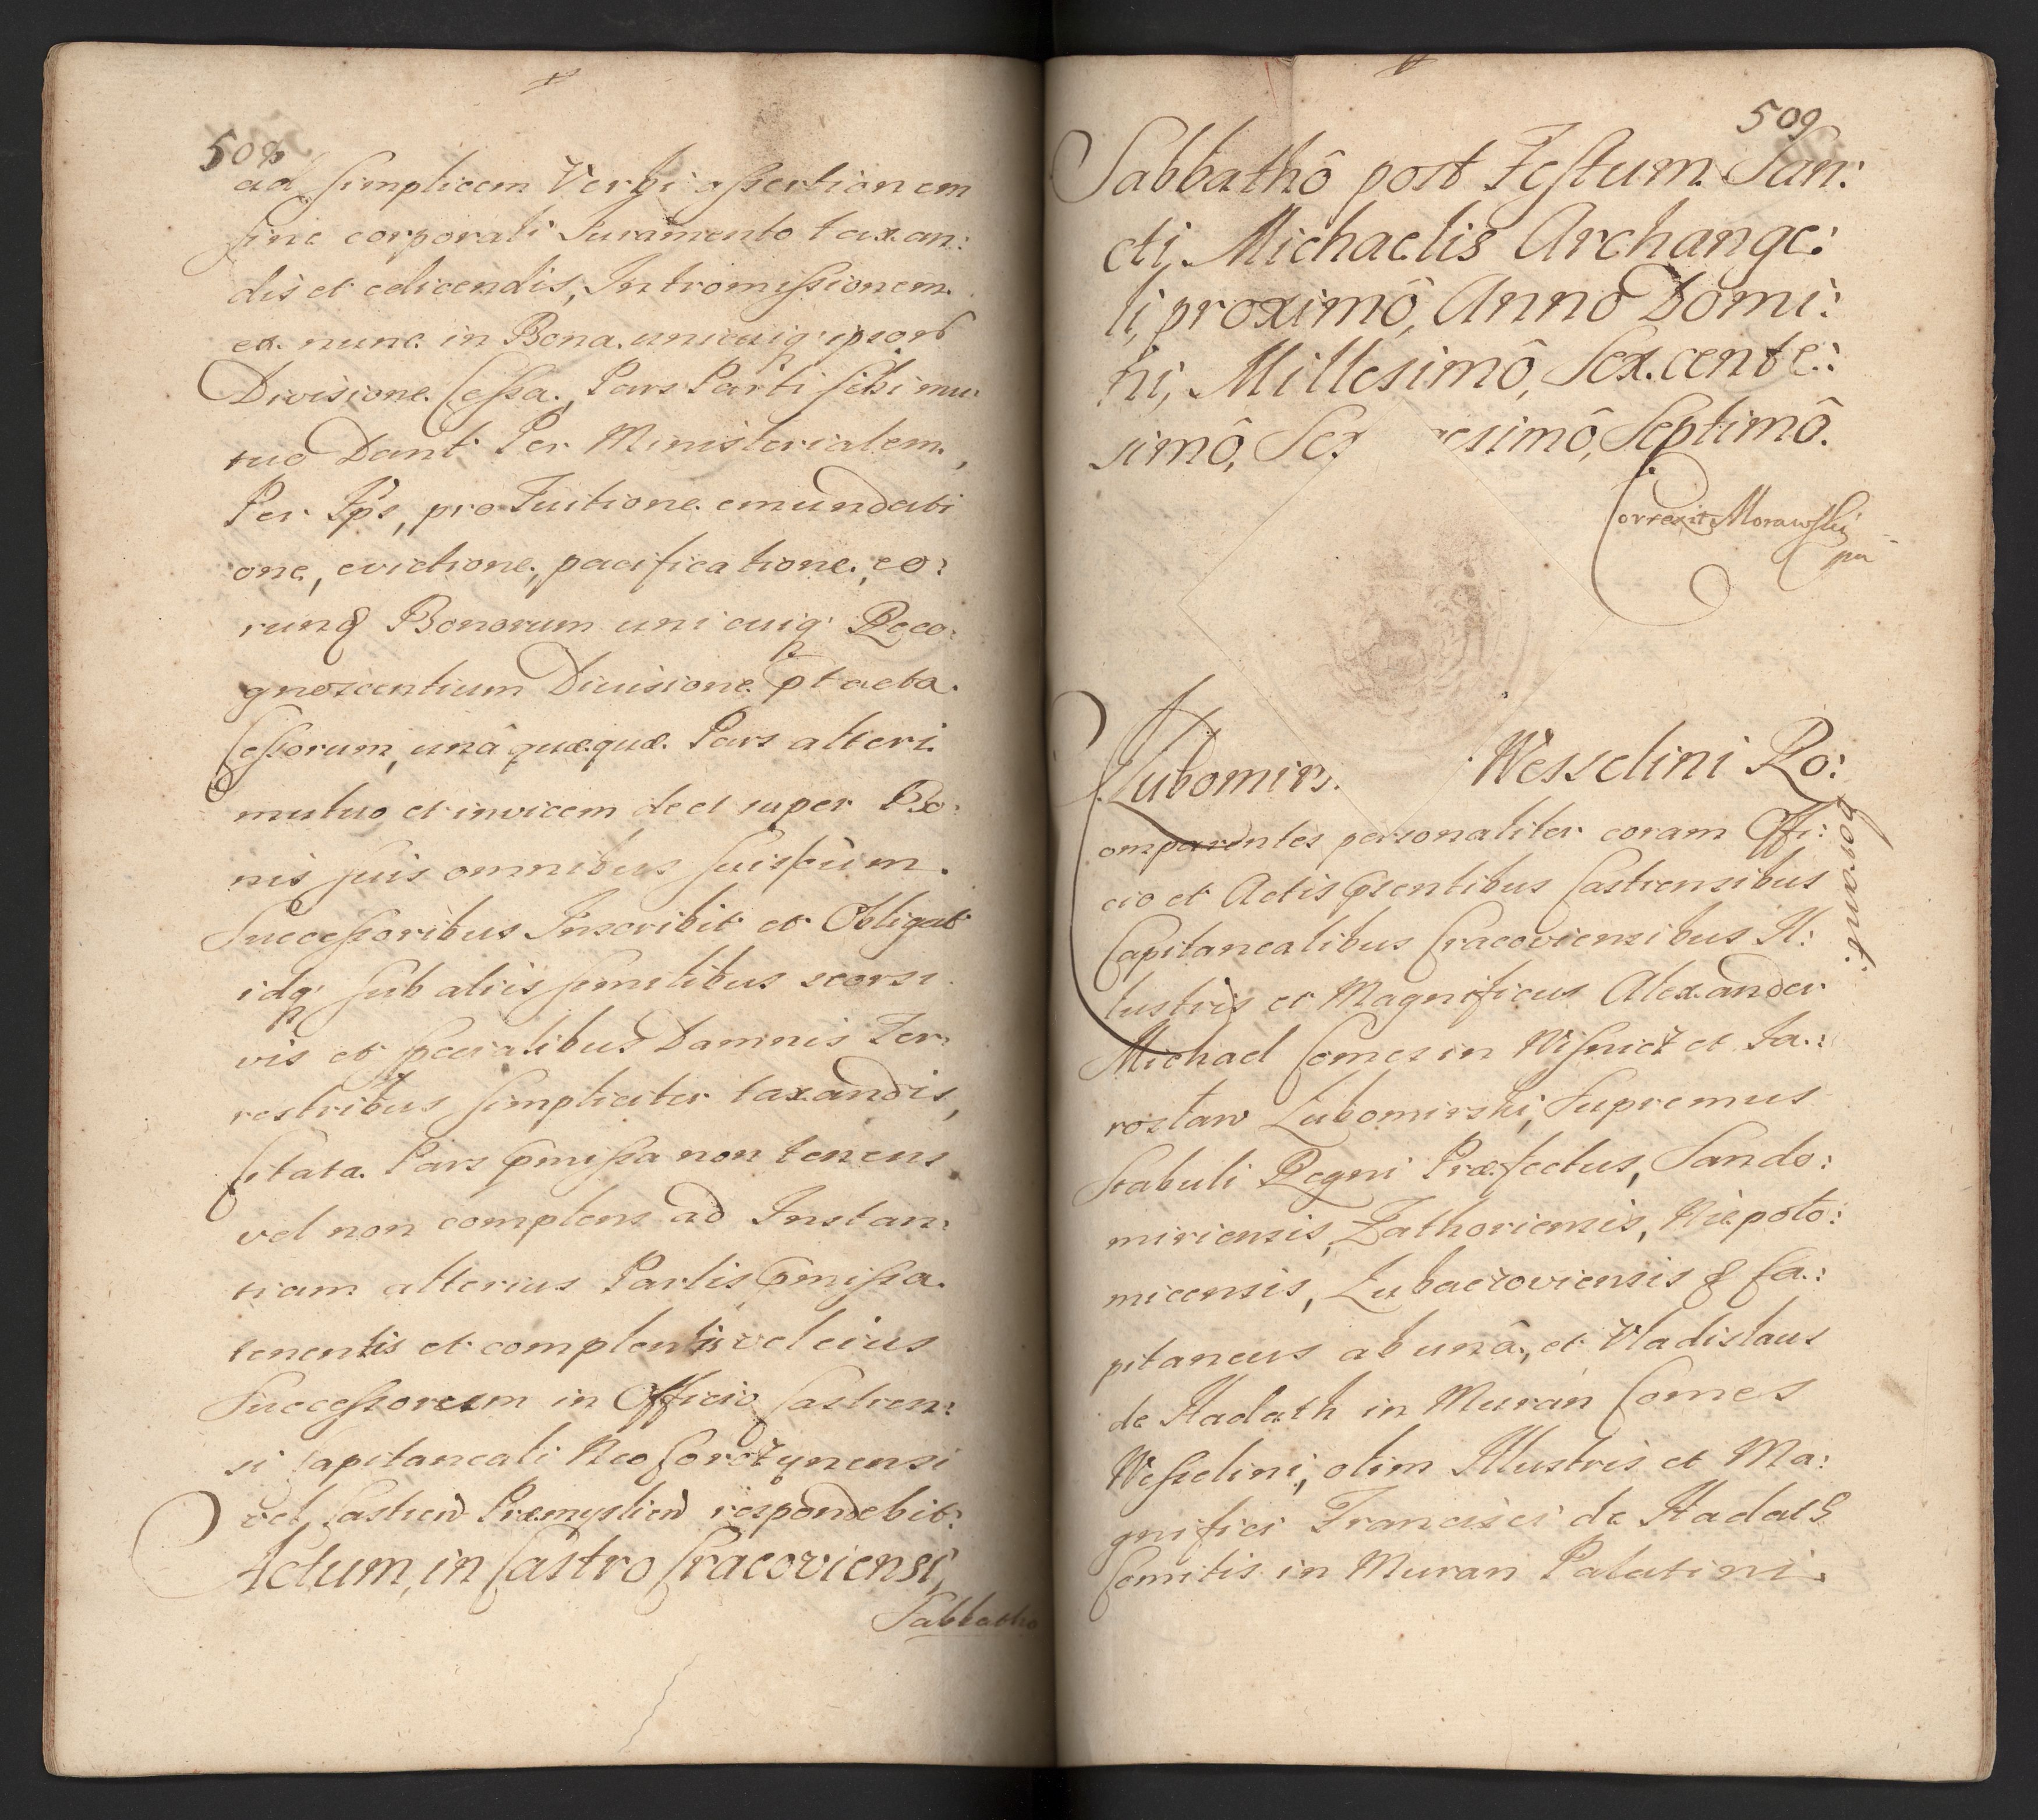 508
ad simplicem Verbi assertionem
sine corporali Juramento taxan:
dis et edicendis, Intromissionem
ex nunc in Bona unicuiq; ipsorũ
Divisione Cessa, Pars Parti sibi mu:
tuo Dant Per Ministerialem,
Per Ips, pro Tuitione emundati
one, evictione, pacificatione, eo:
rundẽ Bonorum unicuiq; Reco:
gnoscentium Divisione p̃tacta
Cessorum, unâ quæquæ Pars alteri
mutuo et invicem, de et super Bo:
nis suis omnibus suis cùm
Successoribus Inscribit et Obligat
idq; sub aliis similibus seorsi
vis et specialibus Damnis Ter:
restribus simpliciter taxandis,
Citata Pars p̃missa non tenens
vel non complens ad Instan:
tiam alterius Partis p̃missa
tenentis et complentis vel eius
Successorum in Officio Castren:
si Capitaneali Neo Corczynensi
vel Castreñ Præmysłieñ respondebit:
Actum, in Castro Cracoviensi,
Sabbatho
509
Sabbathô post Festum San:
cti, Michaelis Archange:
li, proximô, Annô Domi:
ni, Millesimô, Sexcente:
simô, Sex gesimô, Septimô.
Correxit Morawski
mp
Lubomirs. Wesselini Ro:
borant.
omparentes personaliter coram Offi:
cio et Actis p̃sentibus Castrensibus
Capitanealibus Cracoviensibus Il:
lustris et Magnificus Alexander
Michael Comes in Wisnicz et Ja:
rosław Lubomirski, Supremus
Stabuli Regni Præfectus, Sando:
miriensis, Zathoriensis, Niepoło:
micensis, Lubaczoviensis & Ca:
pitaneus ab unâ, et Vladislaus
de Hadath in Muran Comes
Wesselini, olim Illustris et Ma:
gnifici Francisci de Hadath
Comitis in Muran Palatini